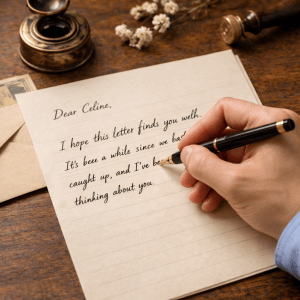 Dear Celine,
I hope this letter finds you welh.
It's beee a while since we bad
caught up, and I've be
thinking about you.